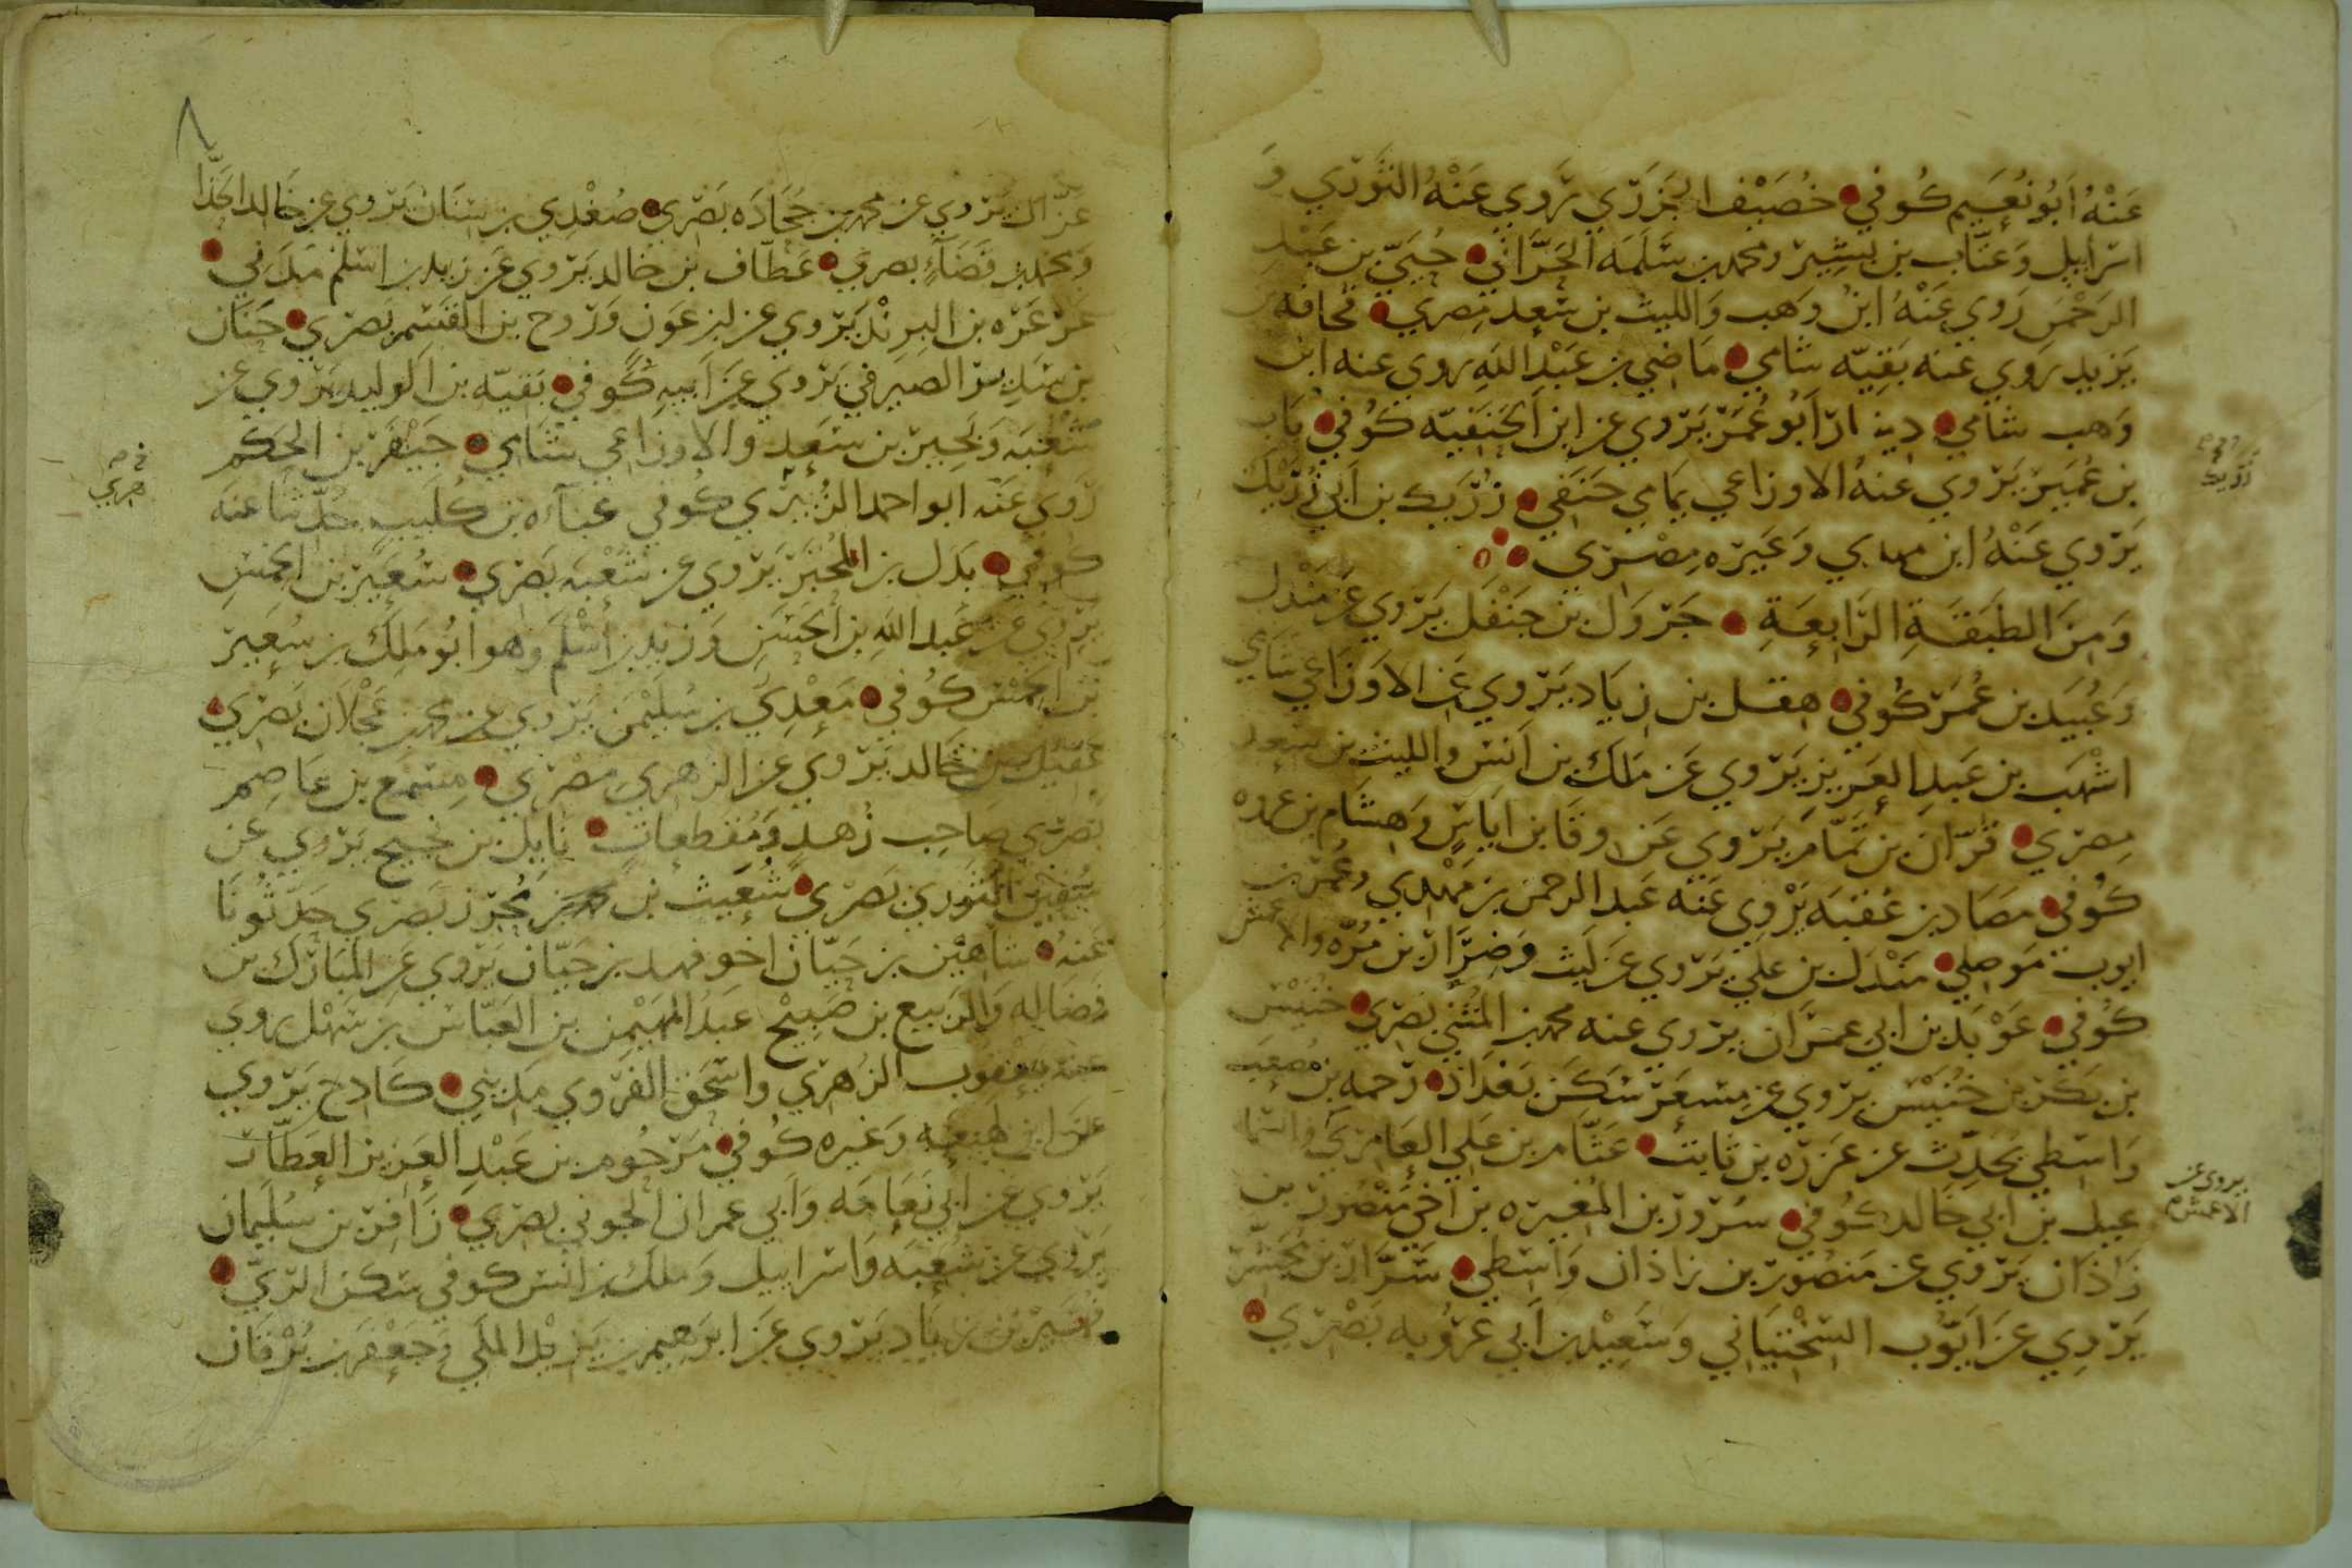 عَنْهُ اَبُو نُعَيم كُوفي خُصَيْف الجَزَرَي يَروي عَنْهُ الثَوْرَي وَ
اسرايل وَعتَّاب بن بشِير ومحمد بن سَلَمَه الحَرَّاني حُيَيّ بن عَبْدِ
الرَحْمن رَوي عَنْهُ ابنُ وَهب وَالليث بن سَعِد مِصري قحافه
يَزيد يَروي عنه بَقيّه شامي مَاضي بن عَبْدِ اللهِ يروي عنه ابن
وَهب شامي دينار اَبُو عُمَر يَرَوي عن ابن الحَنَفيّه كوُفي بَاب
بن عُمَير يَرَوي عنهُ الاوزاعي يمَامي حَنَفي زُرَيك بن اَبي زُرَيك
يَرَوي عَنْهُ ابن مهدي وَغيَره مِصْري
وَمِنَ الطبَقَةِ الرَابعَةِ جَروَل بن جَنْفَل يَرَوي عَن مَنْدل
وَعُبَيد بن عُمَر كُوفي هقل بن زيَاد يَرَوي عَن الاوَزَاعي شَامي
اشْهَب بن عَبدِ العَزيز يَرَوي عَن مَلك بن اَنس والليث بن سَعِد
مِصرَي قُرّان بن تمَّام يَرَوي عَن وقَا بن ايَاس وَهشَام بن عروه
كُوفي مصَاد بن عُقبَه يَرْوِي عَنه عَبد الرحمن بن مَهْدي وعُمر بن
ايوب مَوصلي مَنْدَل بن علي يَرَوي عَن لَيث وَضِرَار بن مُرّه والاعمش
كُوفي عَوْبَد بن ابي عمَران يروي عنه محمد بن المُثني بَصَري خُنَيْس
بن بَكرَ بن خُنَيْس يَروي عن مِسعَر سَكَن بَغدَاد رَحمه بن مُصعَب
وَاسطي يحَدِّث عن عَزرَه بن ثابت عَثّام بن عَلي العَامِري
عيل بن ابي خَالد كُوفي سُرور بن المُغيره بن اَخي مَنْصُور بن
زَاذَان يَرَوي عن مَنصُور بن زاذان وَاسَطي سَرَّار بن مجَشّر
يَرَوي عَن اَيّوب السَخْتيَاني وَسَعِيْد بن اَبي عَروُبه بَصْرَي
زُرَيك
يروي عن
الاعمش م
غزّال يَرَوي عن محمد بن جُحَادَه بَصَري صُغْدِي بن سنَان يَرَوي عن خَالد الحَذّا
وَمحمد بن فَضَآءٍ بصري عَطّاف بن خالد يَرَوي عَن زيد بن اسلم مَدَني
عَرعَرَه بن البِرنْد يَرَوي عن ابن عَون وَرَوح بن القَسم بَصرَي حَنَان
بن سَدِير الصَيرفي يَرَوي عَن اَبيهِ كُوفي بَقيّه بن الوليد يَرَوي عن
شُعْبَه وَبَحير بن سَعِد والاوزاعي شَامي جَيفَر بن الحكم
رَوي عَنَه ابو احمد الزُبَيرَي كوفي عَبآءَه بن كُلَيب حَدّثنا عنَه
كوفي بَدَل بن المُحَبَّر يَرَوي عن شعْبَه بَصَري سُعَير بن الخِمسِ
يَرَوي عَن عَبد اللهِ بن الحَسَن وَزيد بن اَسْلَم وَهو ابُو مَلك بن سُعَير
بن الخِمْس كُوفي مَعْدِي بن سُلَيْمن يَرَوي عن محمد بن عَجْلَان بَصرَي
عُقَيل بن خَالد يَرَوي عن الزهري مصْري مِسَمع بن عَاصِم
بَصرَي صَاحب زُهدٍ وَمُقطعاتٍ نَايل بن نجيح يَرَوي عَن
سُفين الثَوري بَصَري شُعَيث بن محُرز بَصَري حَدّثونَا
عَنهُ شاهَيْن بن حَيّان اخو فهد بن حَيّان يَرَوي عَن المبَارَك بن
فَضَاله وَالرَبيع بن صَبِيْح عَبدُ المُهَيْمِن بن العَبّاس بن سَهْل يروي
عنه يعقوب الزهَري واسحَق الفَرَوي مَدَيني كَادِح يَرَوي
عَن ابن لهيعَه وَغيره كُوفي مَرحُوم بن عَبْدِ العَزيز العَطّار
يَرَوي عن ابي نَعَامَه وَاَبي عمران الجوني بصَري زَافر بن سُليمان
يَرَوي عن شُعبَه وَاسراييل وَملك بن انَس كوفي سَكن الرَيّ
نُصَير بن زيَاد يَرَوي عَن ابرَهيم بن يَزيْد المَكي وَجَعْفَر بن بُرْقَان